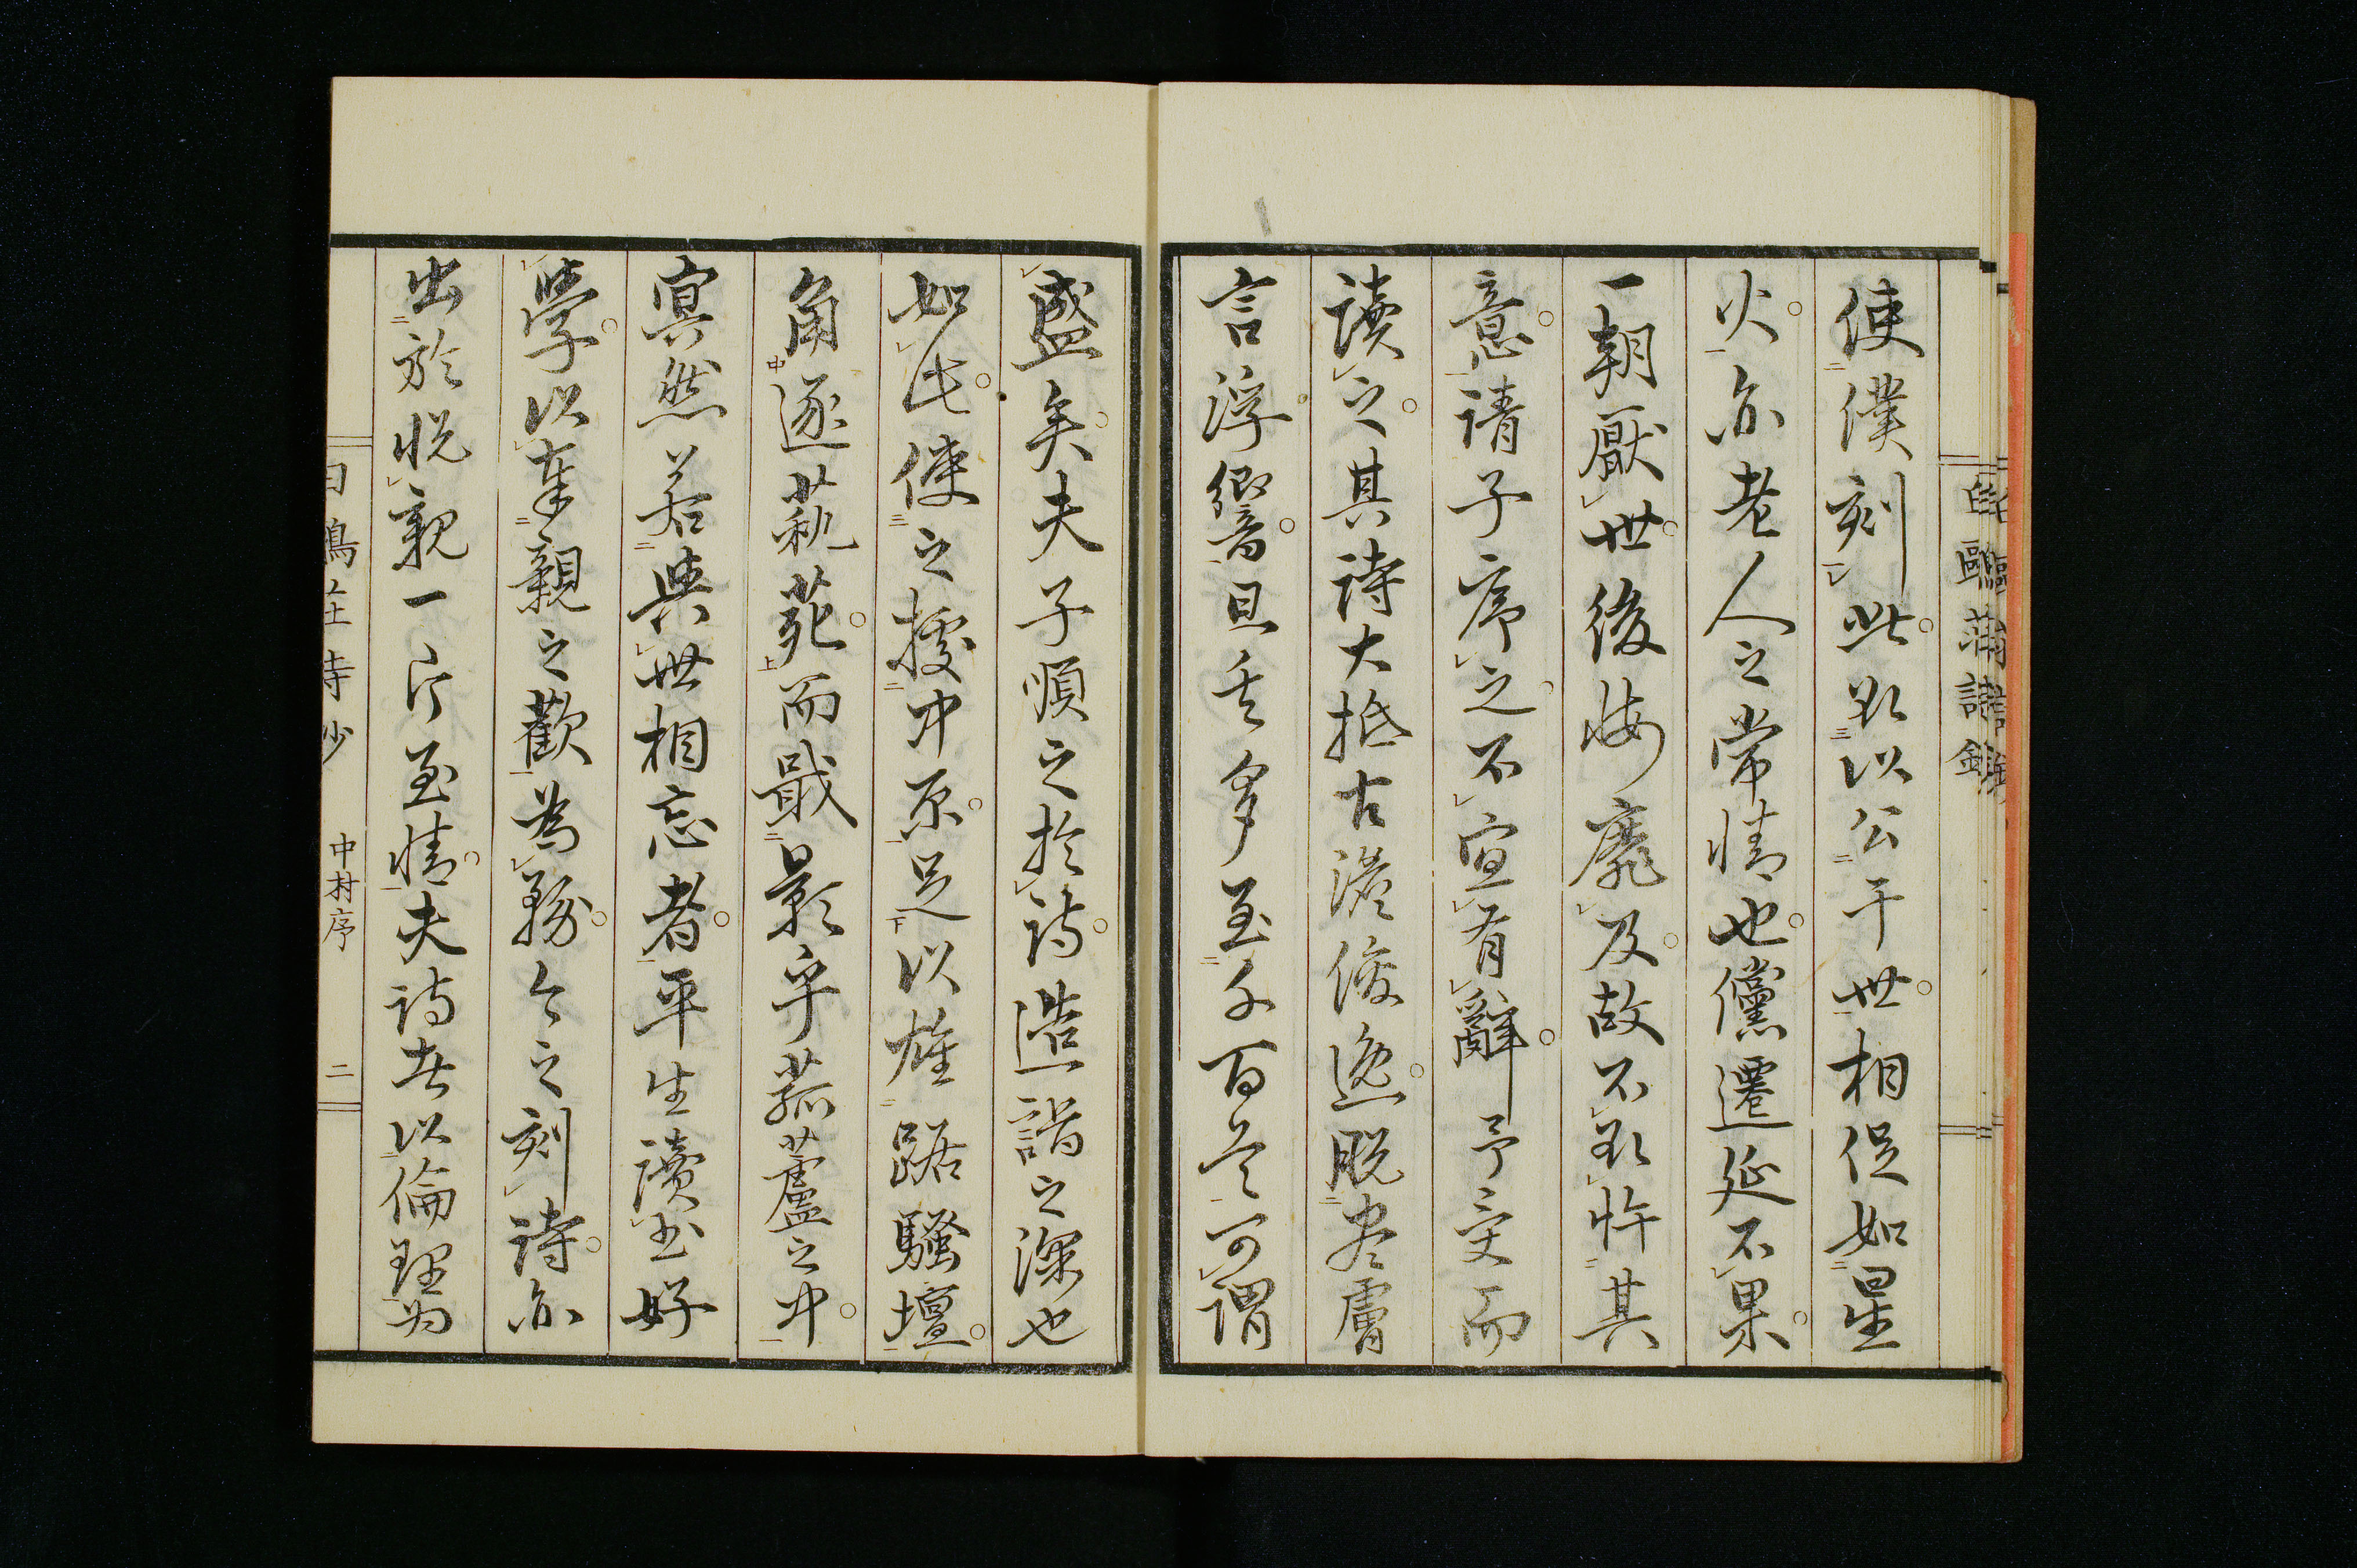 使僕刻此欲以公于世相促如星
火亦老人之常情也儻遷延不果
一朝厭世後悔靡及故不欲忤其
意請子序之不宜有辭予受而
讀之其詩大抵古澹俊逸脫盡膚
言浮響且其多至千百首可謂
盛矣夫子順之於詩造詣之深也
如此使之擾中原足以雄踞騷壇
角逐藝苑而戢影乎菰蘆之中
寞然若與世相忘者平生讀書好
學以奉親之歡為務今之刻詩亦
出於悅親一片至情夫詩者以倫理為
白鳥莊詩少 中村序 二